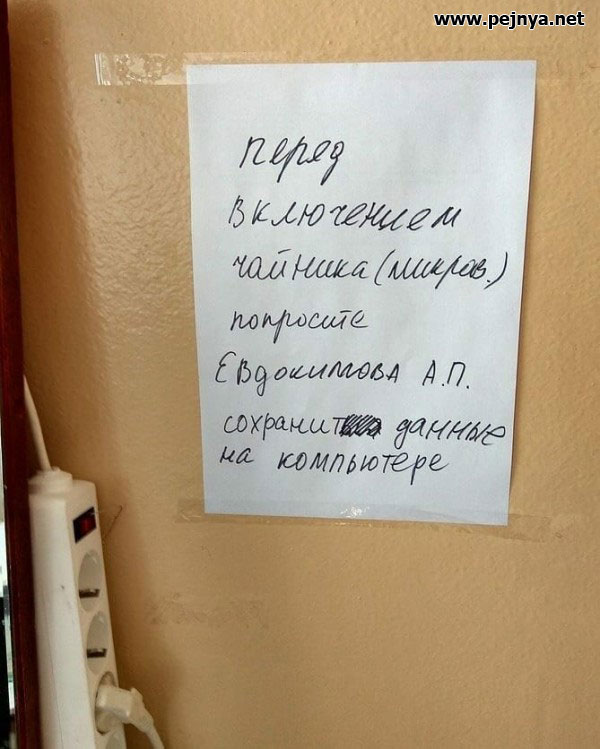 www.pejnya.net
перед
включением
чайника (микров.)
попросите
Евдокимова А.П.
сохранит данные
на компьютере